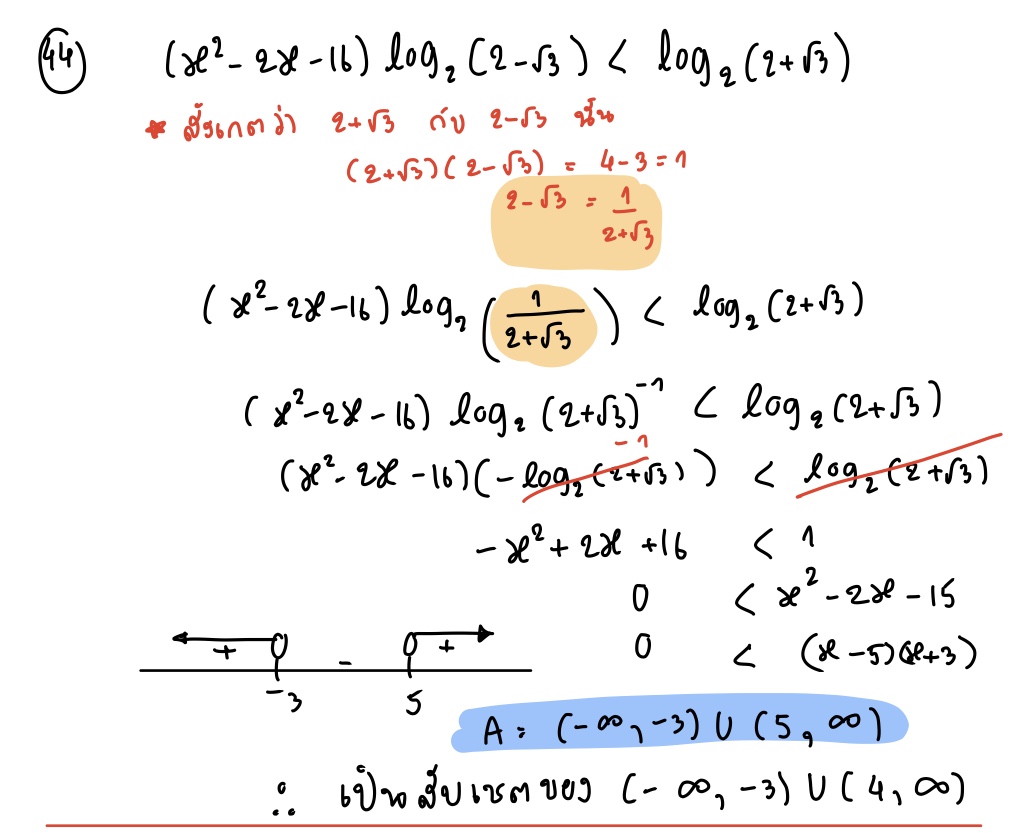 44 (x² - 2x - 16) log₂ (2 - √3) < log₂ (2 + √3)
* สังเกตว่า 2+√3 กับ 2-√3 นั้น
(2+√3)(2-√3) = 4-3 = 1
2-√3 = 1/(2+√3)
(x² - 2x - 16) log₂ (1/(2+√3)) < log₂ (2+√3)
(x² - 2x - 16) log₂ (2+√3)⁻¹ < log₂ (2+√3)
-1
(x² - 2x - 16)(-log₂ (2+√3)) < log₂ (2+√3)
-x² + 2x + 16 < 1
0 < x² - 2x - 15
0 < (x-5)(x+3)
+ - +
-3 5
A = (-∞, -3) ∪ (5, ∞)
∴ เป็นสับเซตของ (-∞, -3) ∪ (4, ∞)